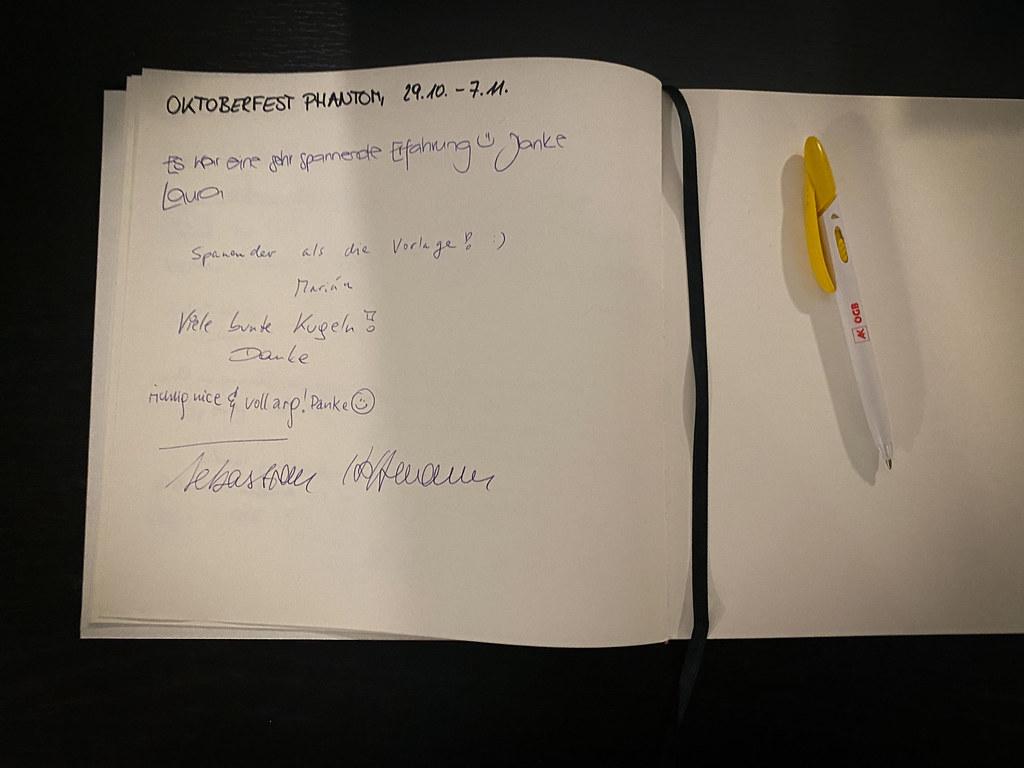 OKTOBERFEST PHANTOM, 29.10. - 7.11.
Es war eine sehr spannende Erfahrung ☺ Danke
Laura
Spanender als die Vorlage! :)
Marián
Viele bunte Kugeln!
Danke
richtig nice & voll arg! Danke ☺
Sebastian Hoffmann
AK ÖGB